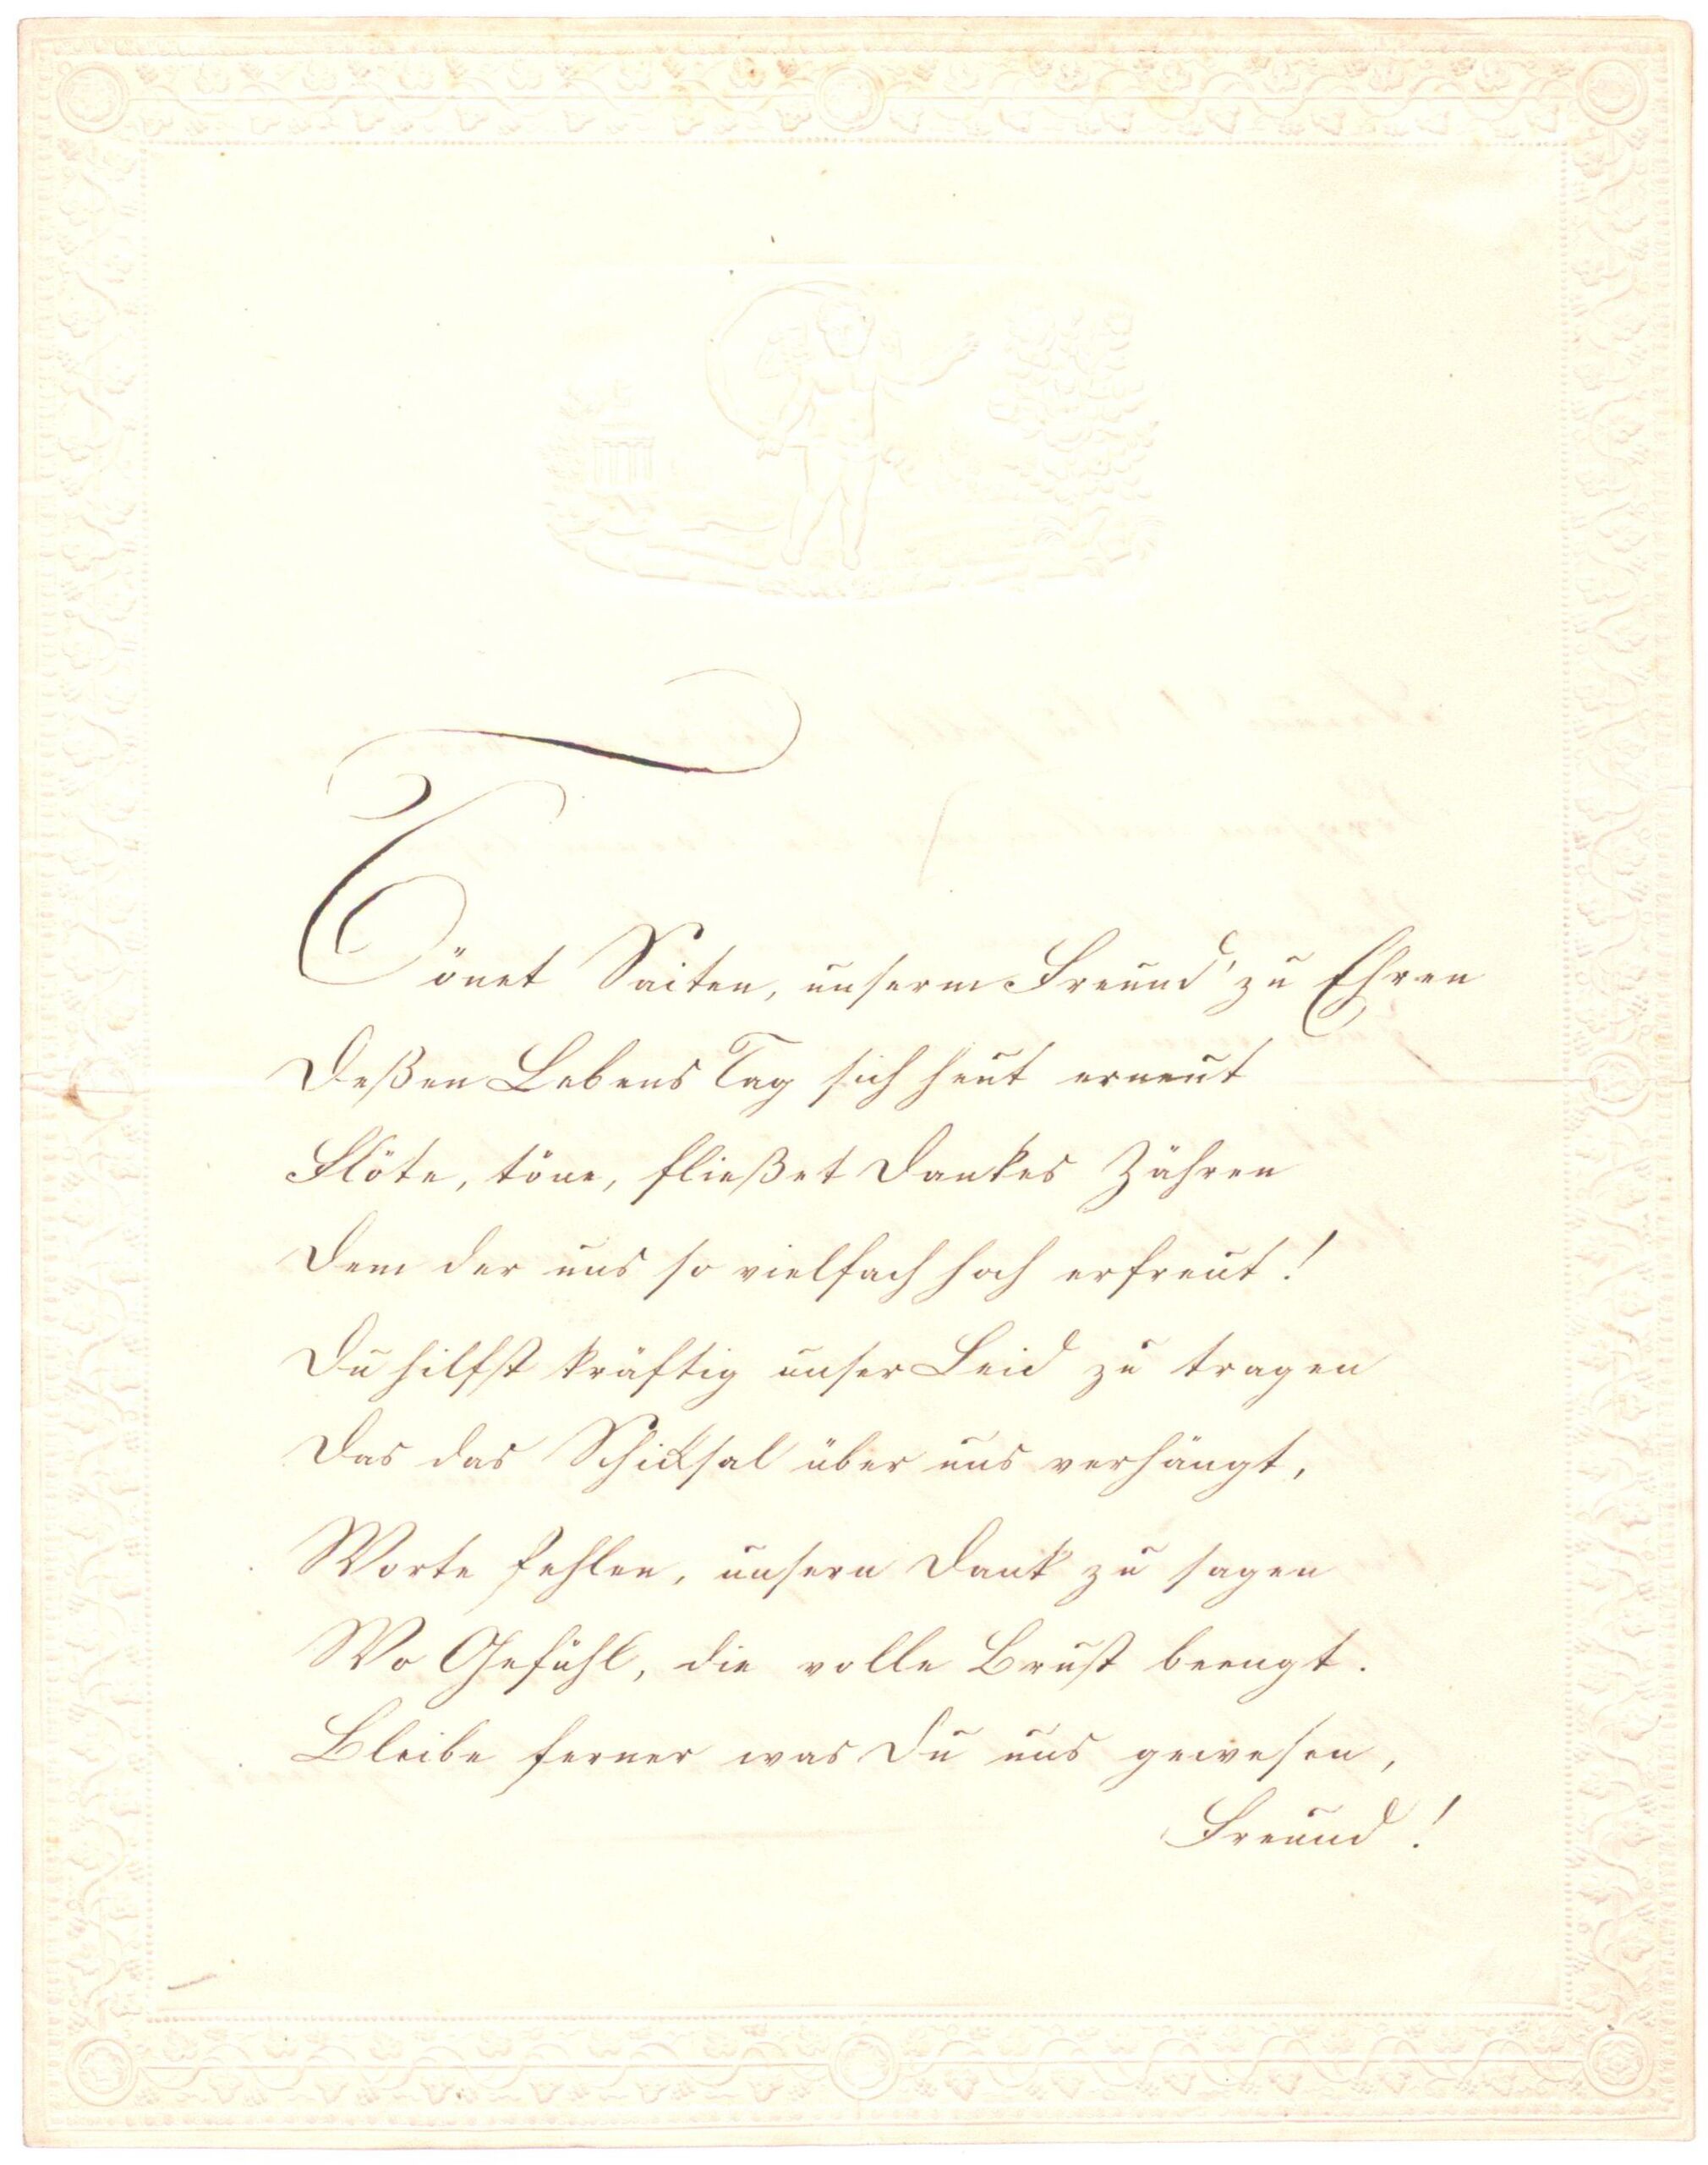 Tönet Saiten, unserm Freund' zu Ehren
Deßen Lebens Tag sich heut erneut
Flöte, töne, fließet Dankes Zähren
Dem der uns so vielfach hoch erfreut!
Du hilfst kräftig unser Leid zu tragen
Das das Schicksal über uns verhängt,
Worte fehlen, unsern Dank zu sagen
Wo Gefühl, die volle Brust beengt.
Bleibe ferner was Du uns gewesen,
Freund!